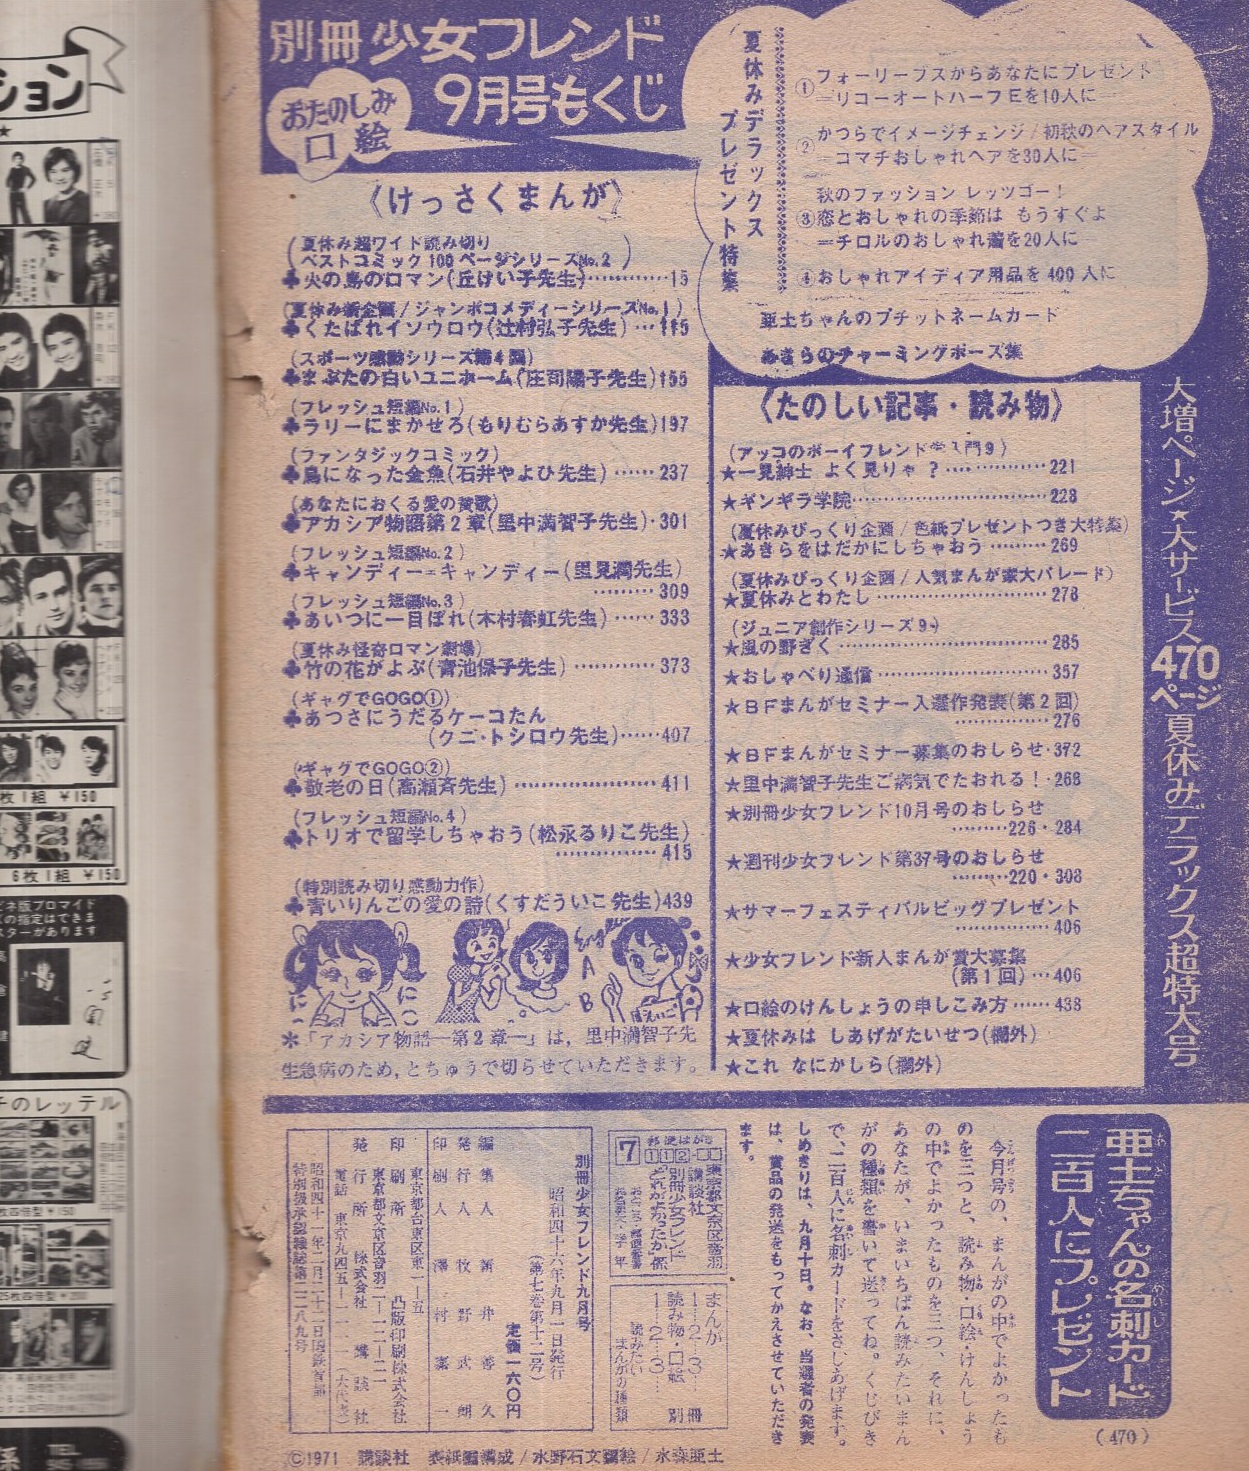 別冊少女フレンド
9月号もくじ
おたのしみ
口絵
夏休みデラックス
プレゼント特集
①フォーリーブスからあなたにプレゼント
=リコーオートハーフEを10人に=
②かつらでイメージチェンジ/初秋のヘアスタイル
=コマチおしゃれヘアを30人に=
秋のファッション レッツゴー!
③恋とおしゃれの季節は もうすぐよ
=チロルのおしゃれ着を20人に=
④おしゃれアイディア用品を400人に
亜土ちゃんのプチットネームカード
あきらのチャーミングポーズ集
《けっさくまんが》
(夏休み超ワイド読み切り
ベストコミック100ページシリーズNo.2)
♣火の鳥のロマン(丘けい子先生)…………15
(夏休み新企画/ジャンボコメディーシリーズNo.1)
♣くたばれイソウロウ(辻村弘子先生)…115
(スポーツ感動シリーズ第4回)
♣まぶたの白いユニホーム(庄司陽子先生)155
(フレッシュ短編No.1)
♣ラリーにまかせろ(もりむらあすか先生)197
(ファンタジックコミック)
♣鳥になった金魚(石井やよひ先生)……237
(あなたにおくる愛の賛歌)
♣アカシア物語第2章(里中満智子先生)・301
(フレッシュ短編No.2)
♣キャンディー=キャンディー(里見潤先生)
………309
(フレッシュ短編No.3)
♣あいつに一目ぼれ(木村春虹先生)……333
(夏休み怪奇ロマン劇場)
♣竹の花がよぶ(青池保子先生)…………373
(ギャグでGOGO①)
♣あつさにうだるケーコたん
(クニ・トシロウ先生)……407
(ギャグでGOGO②)
♣敬老の日(高瀬斉先生)………………411
(フレッシュ短編No.4)
♣トリオで留学しちゃおう(松永るりこ先生)
…………415
(特別読み切り感動力作)
♣青いりんごの愛の詩(くすだういこ先生)439
*「アカシア物語―第2章―」は,里中満智子先
生急病のため,とちゅうで切らせていただきます。
《たのしい記事・読み物》
★一見紳士 よく見りゃ ?…………221
★ギンギラ学院………………………228
(夏休みびっくり企画/色紙プレゼントつき大特集)
★あきらをはだかにしちゃおう………269
(夏休みびっくり企画/人気まんが家大パレード)
★夏休みとわたし……………………278
(ジュニア創作シリーズ9)
★嵐の野ぎく…………………………285
★おしゃべり通信……………………357
★BFまんがセミナー入選作発表(第2回)
…………276
★BFまんがセミナー募集のおしらせ・372
★里中満智子先生ご病気でたおれる!・268
★別冊少女フレンド10月号のおしらせ
………226・284
★週刊少女フレンド第37号のおしらせ
………220・308
★サマーフェスティバルビッグプレゼント
…………406
★少女フレンド新人まんが賞大募集
(第1回)…406
★口絵のけんしょうの申しこみ方……438
★夏休みは しあげがたいせつ(欄外)
★これ なにかしら(欄外)
大増ページ★大サービス470ページ夏休みデラックス超特大号
亜土ちゃんの名刺カード
二百人にプレゼント
今月号の、まんがの中でよかったも
のを三つと、読み物・口絵・けんしょう
の中でよかったものを三つ、それに、
あなたが、いまいちばん読みたいまん
がの種類を書いて送ってね。くじびき
で、二百人に名刺カードをさしあげます。
しめきりは、九月十日。なお、当選者の発表
は、賞品の発送をもってかえさせていただき
ます。
(470)
郵便はがき
7
112
東京都文京区音羽
講談社
別冊少女フレンド
まんが
1…2…3…
読み物・口絵
1…2…3…
読みたい
まんがの種類
別冊少女フレンド九月号
昭和四十六年九月一日発行
(第七巻第十二号)
定価一六〇円
発行所 株式会社 講談社
©1971 講談社 表紙画構成/水野石文 画絵/水森亜土
ション
6枚1組 ¥150
チのレッテル
TEL